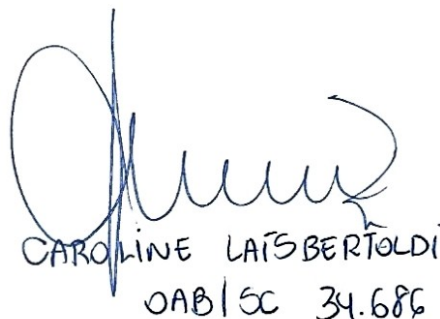 CAROLINE LAÍSBERTOLDI
OAB/SC 34.686